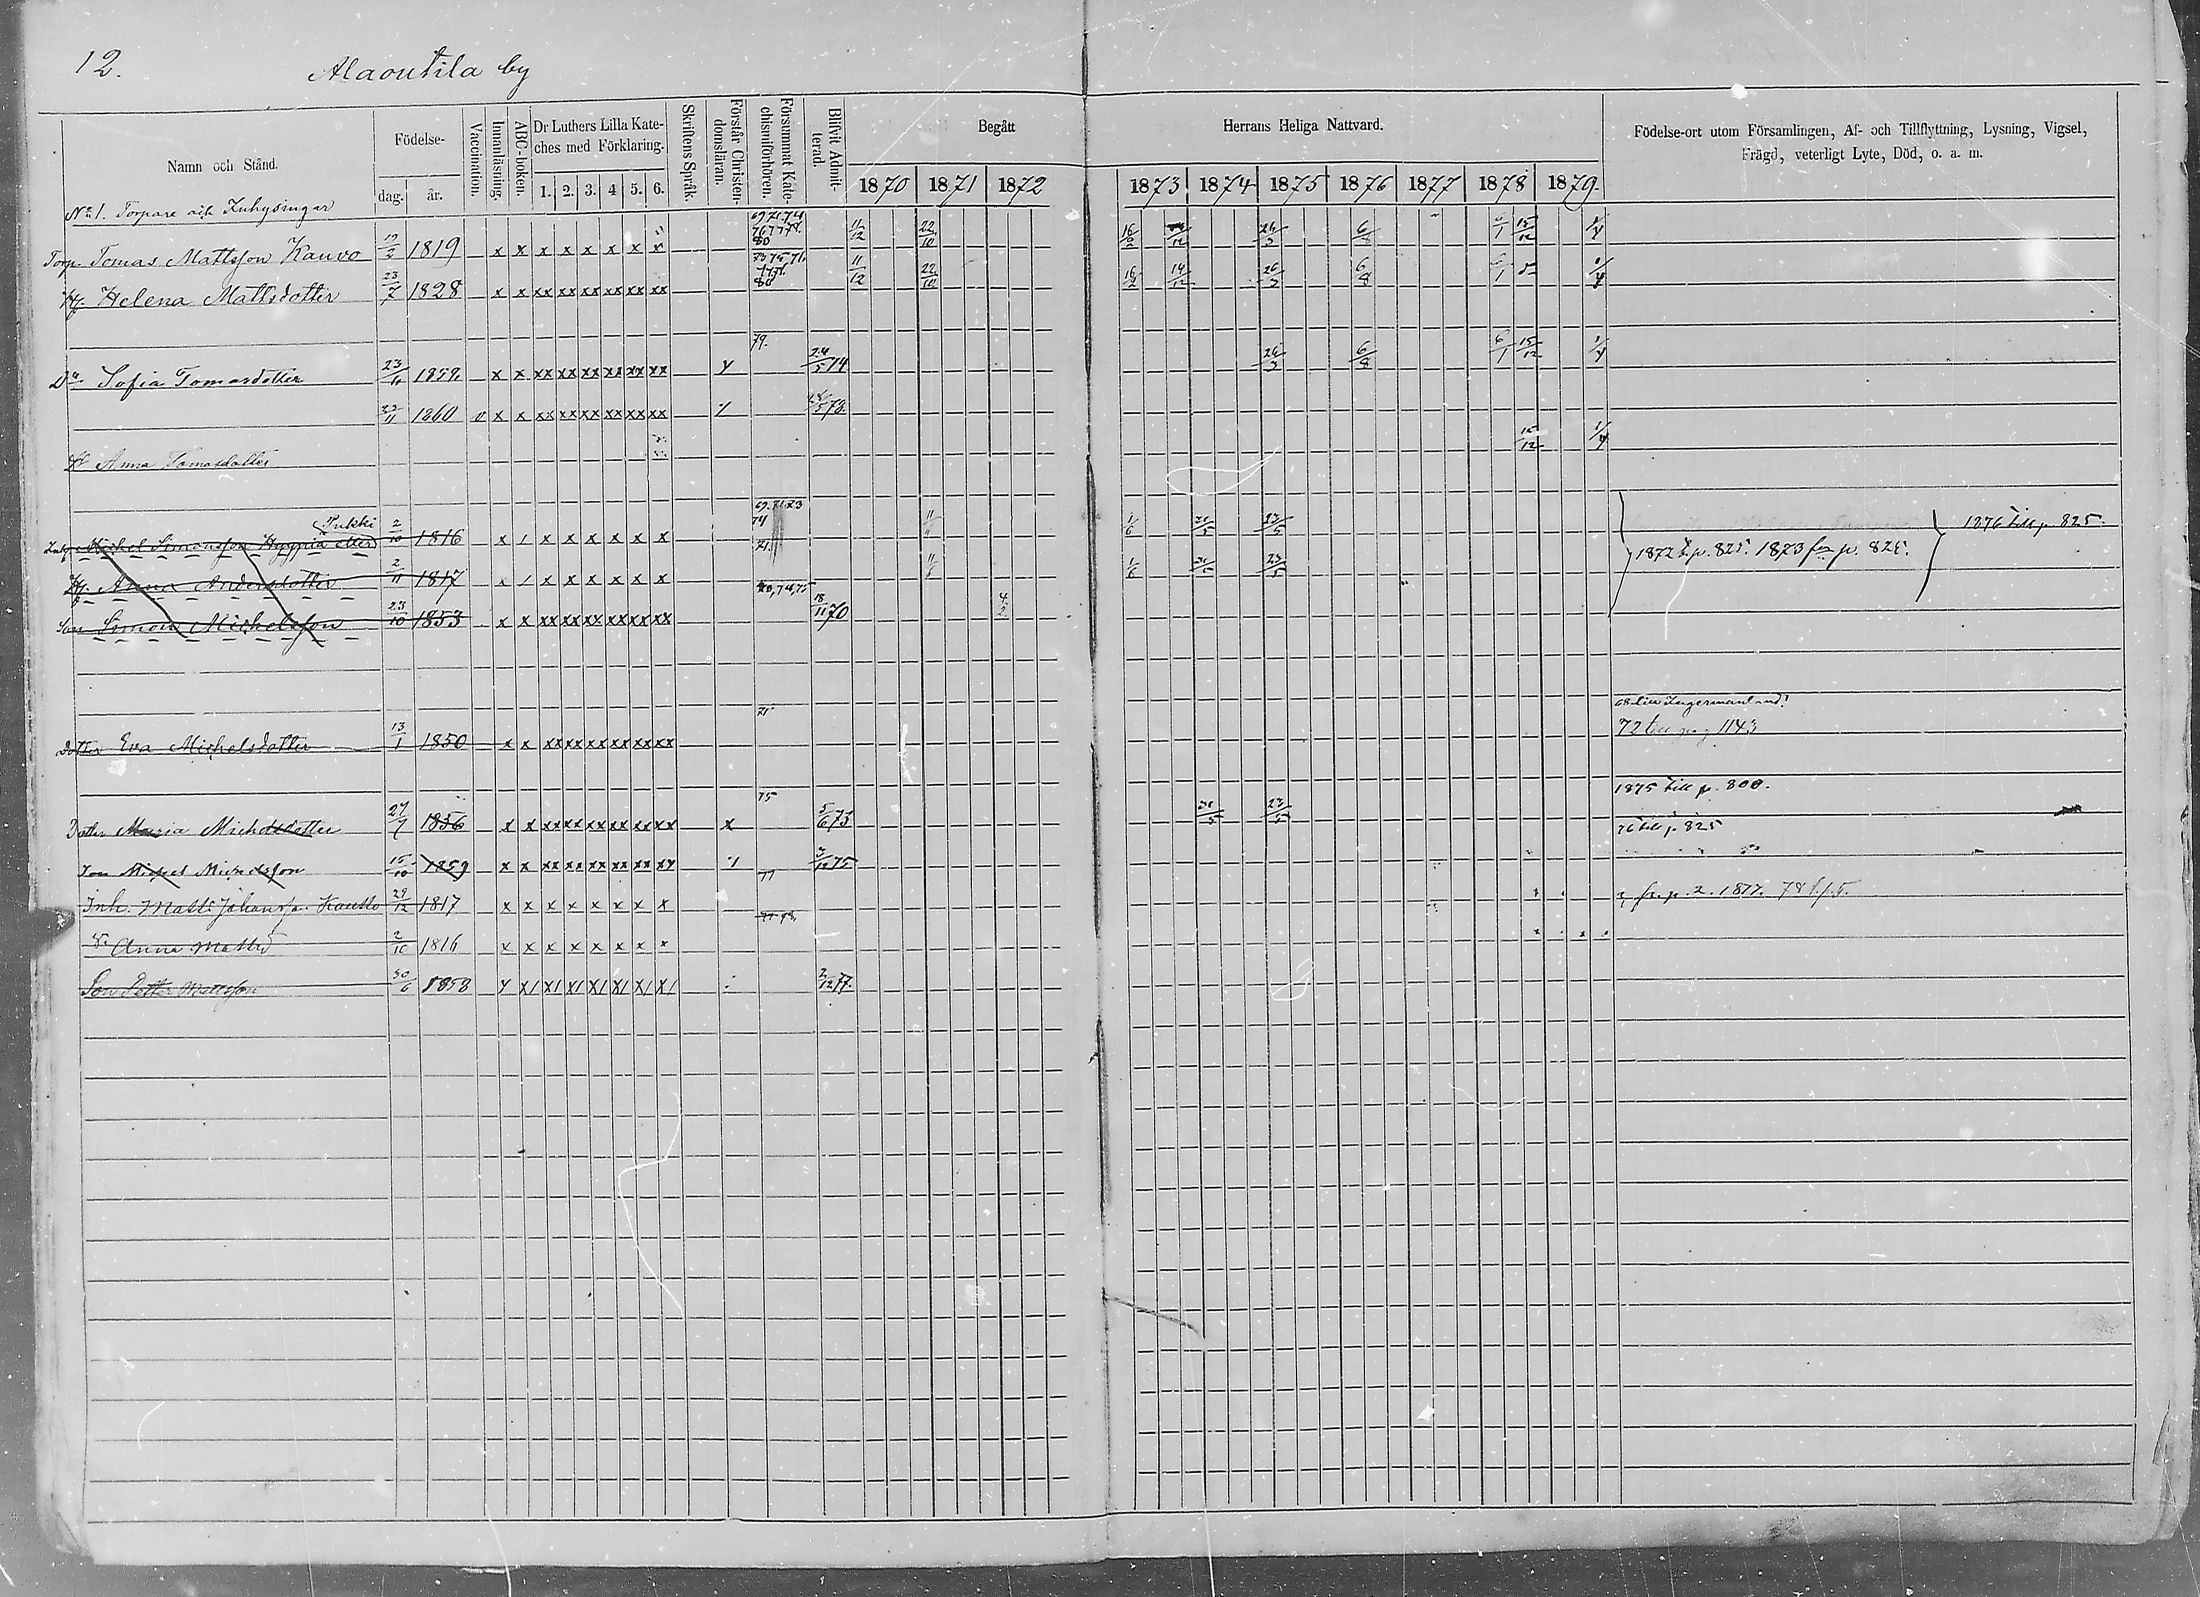 12.
Alaoutila by
Namn och Stånd.
Födelse-
dag. år.
Vaccination.
Innanläsning.
ABC-boken.
Dr Luthers Lilla Kate-
ches med Förklaring.
1. 2. 3. 4 5. 6.
Skriftens Språk.
Förstår Christen-
domsläran.
Försummat Kate-
chismiförhören.
Blifvit Admit-
terad.
Begått
Herrans Heliga Nattvard.
1870 1871 1872
1873 1874 1875 1876 1877 1878 1879.
Födelse-ort utom Församlingen, Af- och Tillflyttning, Lysning, Vigsel,
Frägd, veterligt Lyte, Död, o. a. m.
No 1. Torpare och Inhysingar
Torp. Tomas Mattsson Kauvo 19/2 1819 x x x x x x x x 11/12 22/10 16/2 26/3 6/8 6/1 15/12 1/4
Hu. Helena Mattsdotter 23/7 1828 x x xx xx xx xx xx xx 80 11/12 22/10 16/2 14/12 26/3 6/8 6/1 1/4
Dr. Sofia Tomasdotter 23/11 1858 x x xx xx xx xx xx xx 79. 24/5 74 26/3 6/8 6/1 15/12 1/4
23/11 1860 v x x xx xx xx xx xx xx
Anna Tomasdotter 15/12 1/4
Inh. Michel Simonsson Hyypiä eller Pukki 2/10 1816 x / x x x x x x 69.71.73 74 1/6 31/5 23/5
Hu. Anna Andersdotter 2/11 1817 x / x x x x x x 71. 11/6 1/6 31/5 23/5
1872 t. p. 825. 1873 frn p. 825. 1876 till p. 825.
Son Simon Michelsson 23/10 1853 x x xx xx xx xx xx xx 18/11 70 4/2
68 Ingermanland!
Dotter Eva Michelsdotter 13/1 1850 x x xx xx xx xx xx xx 71. 72 till pag 1143
1875 till p. 800.
Dotter Maria Michelsdotter 27/7 1856 x x xx xx xx xx xx xx x 75 5/6 73 31/5 23/5 76 till p. 825
Son Michel Michelsson 15/10 1859 x x xx xx xx xx xx xx 3/12 75
Inh. Matts Johansson Kautto 29/12 1817 x x x x x x x x 77 fr. p. 2. 1877. 78
Anna Mattsd 2/10 1816 x x x x x x x x 77 78.
Son Petter Mattsson 30/6 1858 2/12 77.